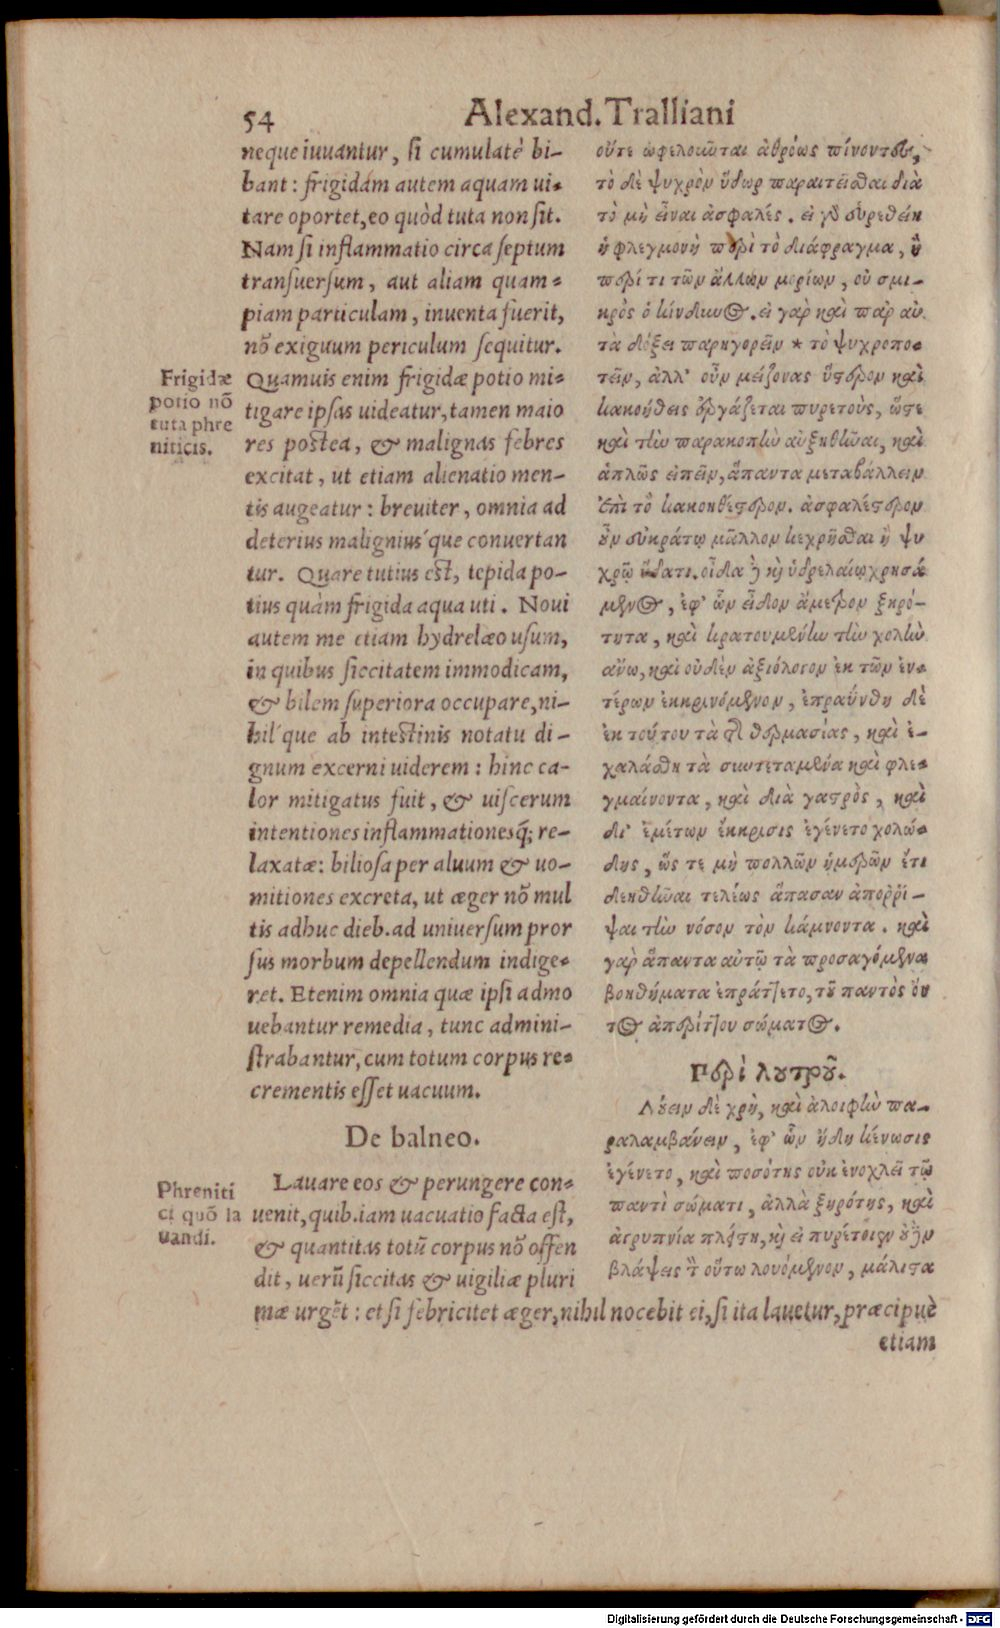 54
Alexand. Tralliani
neque iuuantur, si cumulatè bi-
bant: frigidam autem aquam ui-
tare oportet, eo quòd tuta non sit.
Nam si inflammatio circa septum
transuersum, aut aliam quam-
piam particulam, inuenta fuerit,
nō exiguum periculum sequitur.
Quamuis enim frigidæ potio mi-
tigare ipsas uideatur, tamen maio
res postea, & malignas febres
excitat, ut etiam alienatio men-
tis augeatur: breuiter, omnia ad
deterius malignius´que conuertan
tur. Quare tutius est, tepida po-
tius quàm frigida aqua uti. Noui
autem me etiam hydrelæo usum,
in quibus siccitatem immodicam,
& bilem superiora occupare, ni-
hil´que ab intestinis notatu di-
gnum excerni uiderem: hinc ca-
lor mitigatus fuit, & uiscerum
intentiones inflammationesq́; re-
laxatæ: biliosa per aluum & uo-
mitiones excreta, ut æger nō mul
tis adhuc dieb. ad uniuersum pror
sus morbum depellendum indige-
ret. Etenim omnia quæ ipsi admo
uebantur remedia, tunc admini-
strabantur, cum totum corpus re-
crementis esset uacuum.
De balneo.
Lauare eos & perungere con-
uenit, quib. iam uacuatio facta est,
& quantitas totū corpus nō offen
dit, uerū siccitas & uigiliæ pluri
mæ urgēt: et si febricitet æger, nihil nocebit ei, si ita lauetur, præcipuè
etiam
Frigidæ
potio nō
tuta phre
niticis.
Phreniti
ci quō la
uandi.
οὔτε ὠφελοῦνται ἀθρόως πίνοντες,
τὸ δὲ ψυχρὸν ὕδωρ παραιτεῖσθαι διὰ
τὸ μὴ εἶναι ἀσφαλές. εἰ γὸ εὑρεθείη
ἡ φλεγμονὴ περὶ τὸ διάφραγμα, ἢ
περί τι τῶν ἄλλων μορίων, οὐ σμι-
κρὸς ὁ κίνδυνος. εἰ γὰρ καὶ παρ αὐ
τὰ δόξει παρηγορεῖν * τὸ ψυχροπο-
τεῖν, ἀλλ' οὖν μείζονας ὕστερον καὶ
κακοήθεις ἐργάζεται πυρετοὺς, ὥστε
καὶ τὴν παρακοπὴν αὐξηθῆναι, καὶ
ἁπλῶς εἰπεῖν, ἅπαντα μεταβάλλειν
ἐπὶ τὸ κακοηθέστερον. ἀσφαλέστερον
οὖν εὐκράτῳ μᾶλλον κεχρῆσθαι ἢ ψυ
χρῷ ὕδατι. οἶδα δὲ κὴ ὑδρελαίῳ χρησά
μενος, ἐφ' ὧν εἶδον ἄμετρον ξηρό-
τητα, καὶ κρατουμένην τὴν χολὴν
ἄνω, καὶ οὐδὲν ἀξιόλογον ἐκ τῶν ἐν-
τέρων ἐκκρινόμενον, ἐπραΰνθη δὲ
ἐκ τούτου τὰ τῆς θερμασίας, καὶ ἐ-
χαλάσθη τὰ συντεταμένα καὶ φλε-
γμαίνοντα, καὶ διὰ γαστρὸς, καὶ
δι' ἐμέτων ἔκκρισις ἐγένετο χολώ-
δης, ὥς τε μὴ πολλῶν ἡμερῶν ἔτι
δεηθῆναι τελέως ἅπασαν ἀποῤῥί-
ψαι τὴν νόσον τὸν κάμνοντα. καὶ
γὰρ ἅπαντα αὐτῷ τὰ προσαγόμενα
βοηθήματα ἐπράττετο, τοῦ παντὸς ὄν
τος ἀπερίττου σώματος.
Περὶ λουτροῦ.
Λούειν δὲ χρὴ, καὶ ἀλοιφὴν πα-
ραλαμβάνειν, ἐφ' ὧν ἤδη κένωσις
ἐγένετο, καὶ ποσότης οὐκ ἐνοχλεῖ τῷ
παντὶ σώματι, ἀλλὰ ξηρότης, καὶ
ἀγρυπνία πλείστη, κὴ εἰ πυρέτοιεν οὐδὲν
βλάψεις τ̀ οὕτω λουόμενον, μάλιστα
Digitalisierung gefördert durch die Deutsche Forschungsgemeinschaft - DFG